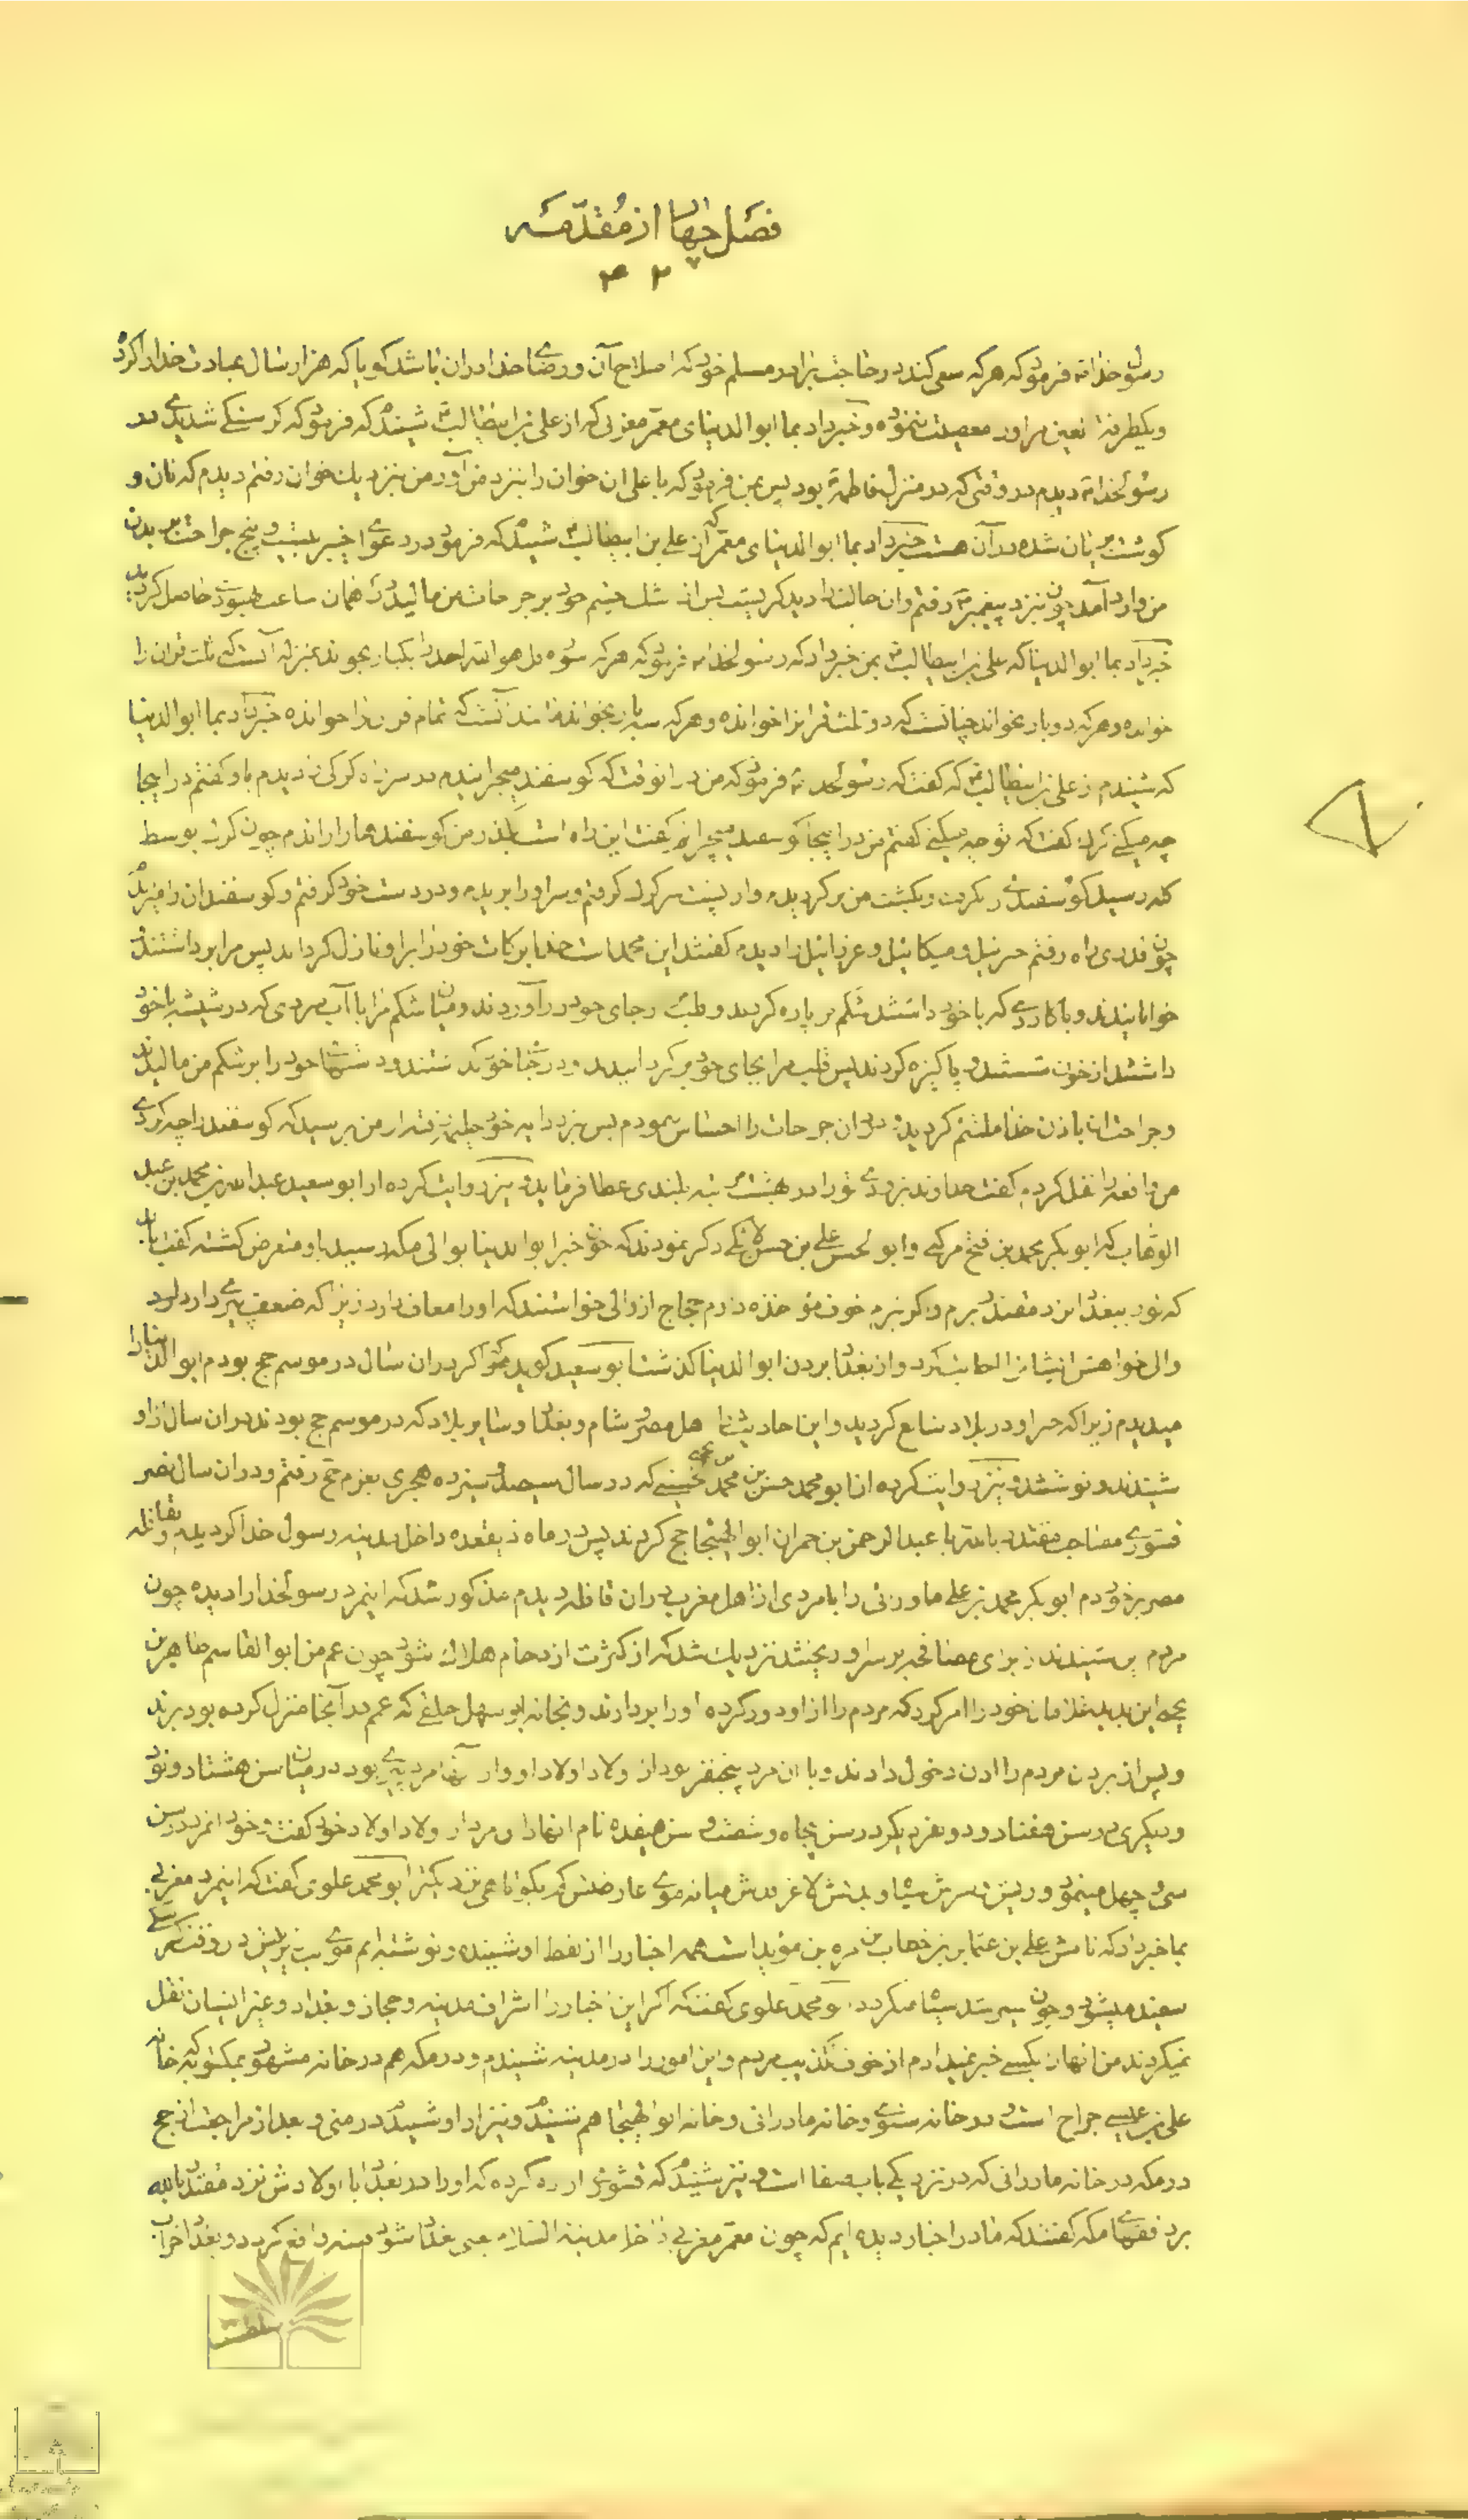 فصل چهارم از مقدمه
رسول خدا ص فرمود که هر که سعی کند در حاجت برادر مسلم خود که اصلاح آن و رضای خدا در آن باشد گویا که هزار سال عبادت خدا را کرده
و یکطرفة العین مر او را معصیت ننموده و خبر داد بما ابوالدنیای معمر مغربی که از علی بن ابیطالب ع شنیدم که فرمود که گرسنگی شدیدی در
رسول خدا ص دیدم در وقتی که در منزل فاطمه ع بود پس بمن فرمود که یا علی آن خوان را بنزد من آور من بنزدیک خوان رفتم دیدم که نان و
گوشت بریان شده در آن هست خبر داد بما ابوالدنیای معمر که از علی بن ابیطالب ع شنیدم که فرمود در دعوای خیبر بیست و پنج جراحت بر بدن
من وارد آمد چون بنزد پیغمبر ص رفتم و آن حالت را دید گریست پس از اشک چشم خود بر جراحات من مالید در همان ساعت بهبودی حاصل گردید
خبر داد بما ابوالدنیا که علی بن ابیطالب ع بمن خبر داد که رسول خدا ص فرمود که هر که سوره قل هو الله احد را یکبار بخواند بمنزله آنست که ثلث قرآن را
خوانده و هر که دو بار بخواند چنانست که دو ثلث قرآن را خوانده و هر که سه بار بخواند مانند آنست که تمام قرآن را خوانده خبر داد بما ابوالدنیا
که شنیدم از علی بن ابیطالب ع که گفت که رسول خدا ص فرمود که من در آنوقت که گوسفند میچرانیدم در سر راه گرگی را دیدم باو گفتم در اینجا
چه میکنی گرگ گفت که تو چه میکنی گفتم من در اینجا گوسفند میچرانم گفت این راه است بگذر من گوسفندها را راندم چون گرگ بوسط
گله رسید گوسفندی را گرفت و بکشت من برگردیدم و از پشت سر گرگ گرفتم و سر او را بریدم و در دست خود گرفتم و گوسفندان را میراندم
چون قدری راه رفتم جبرئیل و میکائیل و عزرائیل را دیدم گفتند این محمد است خدا برکات خود را بر او نازل گرداند پس مرا برداشتند
خوابانیدند و با کاردی که با خود داشتند شکم مرا پاره کردند و قلبم را از جای خود در آوردند و میان شکم مرا با آب سردی که در شیشه با خود
داشتند از خون شستند و پاکیزه کردند پس قلب مرا بجای خود برگردانیدند و در جای خود گذاشتند و دستهای خود را بر شکم من مالیدند
و جراحتها باذن خدا ملتئم گردید و در آن جراحات را احساس ننمودم پس بنزد دایه خود حلیمه رفتم از من پرسید که گوسفند را چه کردی
من واقعه را نقل کردم گفت خداوند بزودی تو را در بهشت رتبه بلندی عطا فرماید و نیز روایت کرده از ابو سعید عبدالله بن محمد بن عبد
الوهاب که ابوبکر محمد بن فتح مرکنی و ابوالحسن علی بن حسن لانکی ذکر نمودند که چون خبر ابوالدنیا بوالی مکه رسید باو متعرض گشته گفت باید
که تو را ببغداد نزد مقتدر برم و اگر نبرم خوف مؤاخذه دارم حجاج از والی خواستند که او را معاف دارد زیرا که ضعف پیری دارد
والی خواهش ایشان را اجابت کرد و از بغداد بردن ابوالدنیا گذشت ابو سعید گوید که اگر در آن سال در موسم حج بودم ابوالدنیا را
میدیدم زیرا که خبر او در بلاد شایع گردید و این احادیث را اهل مصر و شام و بغداد و سایر بلاد که در موسم حج بودند در آن سال از او
شنیدند و نوشتند و نیز روایت کرده از ابو محمد حسن بن محمد بن یحیی حسینی که در سال سیصد و سیزده هجری بعزم حج رفتم و در آن سال نصر
قشوری مصاحب مقتدر بالله با عبدالرحمن بن حمران ابوالهیجا حج کردند پس در ماه ذیقعده داخل مدینه رسول خدا گردیدم و بقافله
مصر برخوردم ابوبکر محمد بن علی مادرائی را با مردی از اهل مغرب در آن قافله دیدم مذکور شد که اینمرد رسول خدا را دیده چون
مردم این شنیدند از برای مصافحه بر سر او ریختند نزدیک شد که از کثرت ازدحام هلاک شود چون عم من ابوالقاسم طاهر بن
یحیی این بدید غلامان خود را امر کرد که مردم را از او دور کرده او را بردارند و بخانه ابو سهل طغی که عمم در آنجا منزل کرده بود برند
و پس از بردن مردم را اذن دخول دادند و با آن مرد پنج نفر بود از اولاد اولاد او و از آنها مرد پیری بود در میان سن هشتاد و نود
و دیگری در سن هفتاد و دو نفر دیگر در سن پنجاه و شصت و سن هفده نام آنها را آن مرد از اولاد اولاد خود گفت و خود آنمرد در سن
سی و چهل مینمود و ریش و سرش سیاه و بدنش لاغر قدش میانه موی عارضش کم بکوتاهی نزدیکتر ابو محمد علوی گفت که اینمرد مغربی
بما خبر داد که نامش علی بن عثمان بن خطاب بن مره بن مؤید است همه اخبار را از لفظ او شنیده و نوشته ایم موی زیر لبش در وقت گرسنگی
سفید میشود و چون سیر شد سیاه میگردد ابو محمد علوی گفت که اگر این اخبار را اشراف مدینه و حجاز و بغداد و غیر ایشان نقل
نمیکردند من آنها را بکسی خبر نمیدادم از خوف تکذیب مردم و این امور را در مدینه شنیدم و در مکه هم در خانه مشهور بمکتوبه که خانه
علی بن عیسی جراح است و در خانه قشوری و خانه مادرانی و خانه ابوالهیجا هم شنیدم و نیز از او شنیدم در منی و بعد از مراجعت از حج
در مکه در خانه مادرانی که در نزدیکی باب صفا است و نیز شنیدم که قشوری اراده کرده که او را در بغداد با اولادش نزد مقتدر بالله
برد فقهای مکه گفتند که ما در اخبار دیده ایم که چون معمر مغربی داخل مدینة السلام یعنی بغداد شود فتنه واقع گردد و بغداد خراب